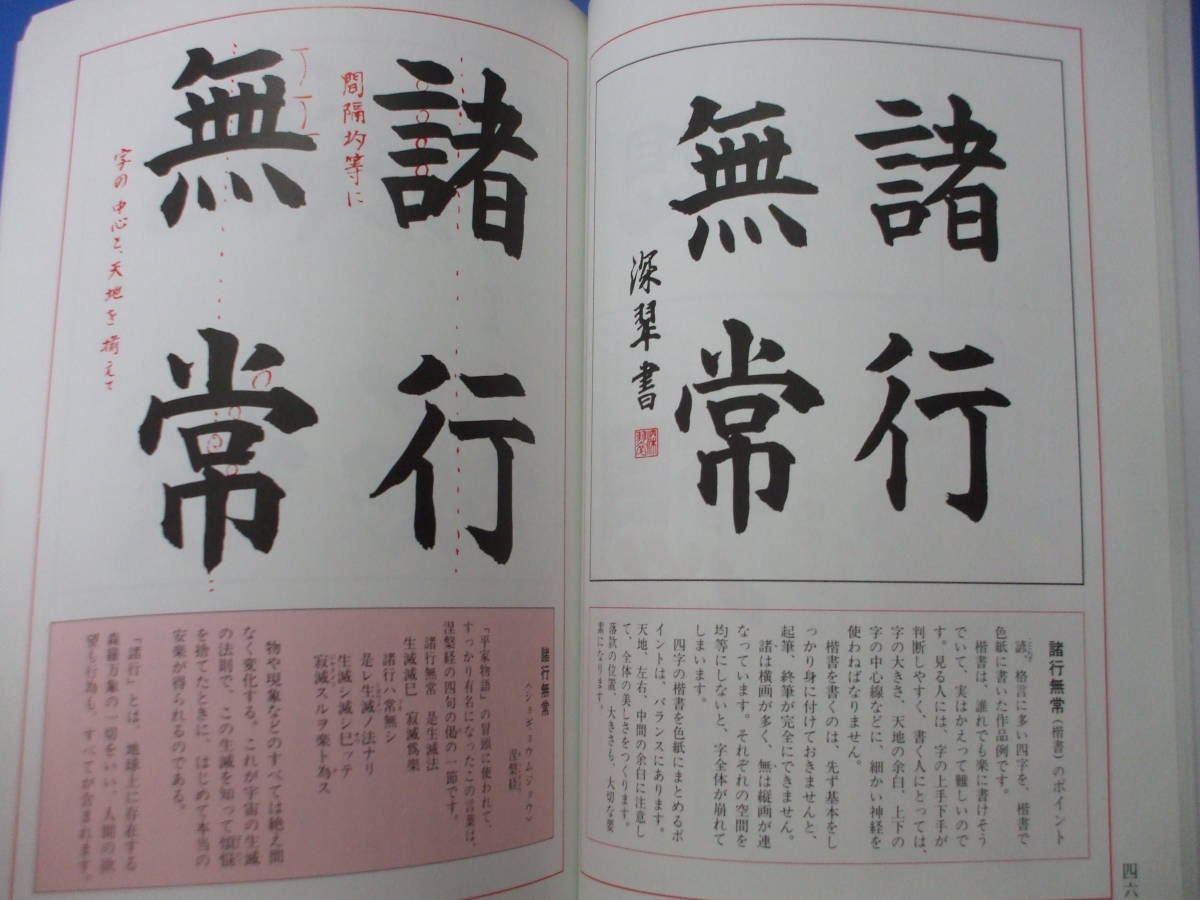 諸行
無常
深翠書
諸行無常(楷書)のポイント
諺、格言に多い四字を、楷書で
色紙に書いた作品例です。
楷書は、誰れでも楽に書けそう
でいて、実はかえって難しいので
す。見る人には、字の上手下手が
判断しやすく、書く人にとっては、
字の大きさ、天地の余白、上下の
字の中心線などに、細かい神経を
使わねばなりません。
楷書を書くのは、先ず基本をし
っかり身に付けておきませんと、
起筆、終筆が完全にできません。
諸は横画が多く、無は縦画が連
なっています。それぞれの空間を
均等にしないと、字全体が崩れて
しまいます。
四字の楷書を色紙にまとめるポ
イントは、バランスにあります。
天地、左右、中間の余白に注意し
て、全体の美しさをつくります。
落款の位置、大きさも、大切な要
素になります。
四六
諸行
無常
間隔均等に
字の中心と、天地を揃えて
諸行無常
涅槃経
〈ショギョウムジョウ〉
『平家物語』の冒頭に使われて、
すっかり有名になったこの言葉は、
涅槃経の四句の偈の一節です。
諸行無常 是生滅法
生滅滅已 寂滅為楽
諸行ハ常無シ
是レ生滅ノ法ナリ
生滅シ滅シ已ッテ
寂滅スルヲ楽ト為ス
物や現象などのすべては絶え間
なく変化する。これが宇宙の生滅
の法則で、この生滅を知って煩悩
を捨てたときに、はじめて本当の
安楽が得られるのである。
「諸行」とは、地球上に存在する
森羅万象の一切をいい、人間の欲
望も行為も、すべてが含まれます。